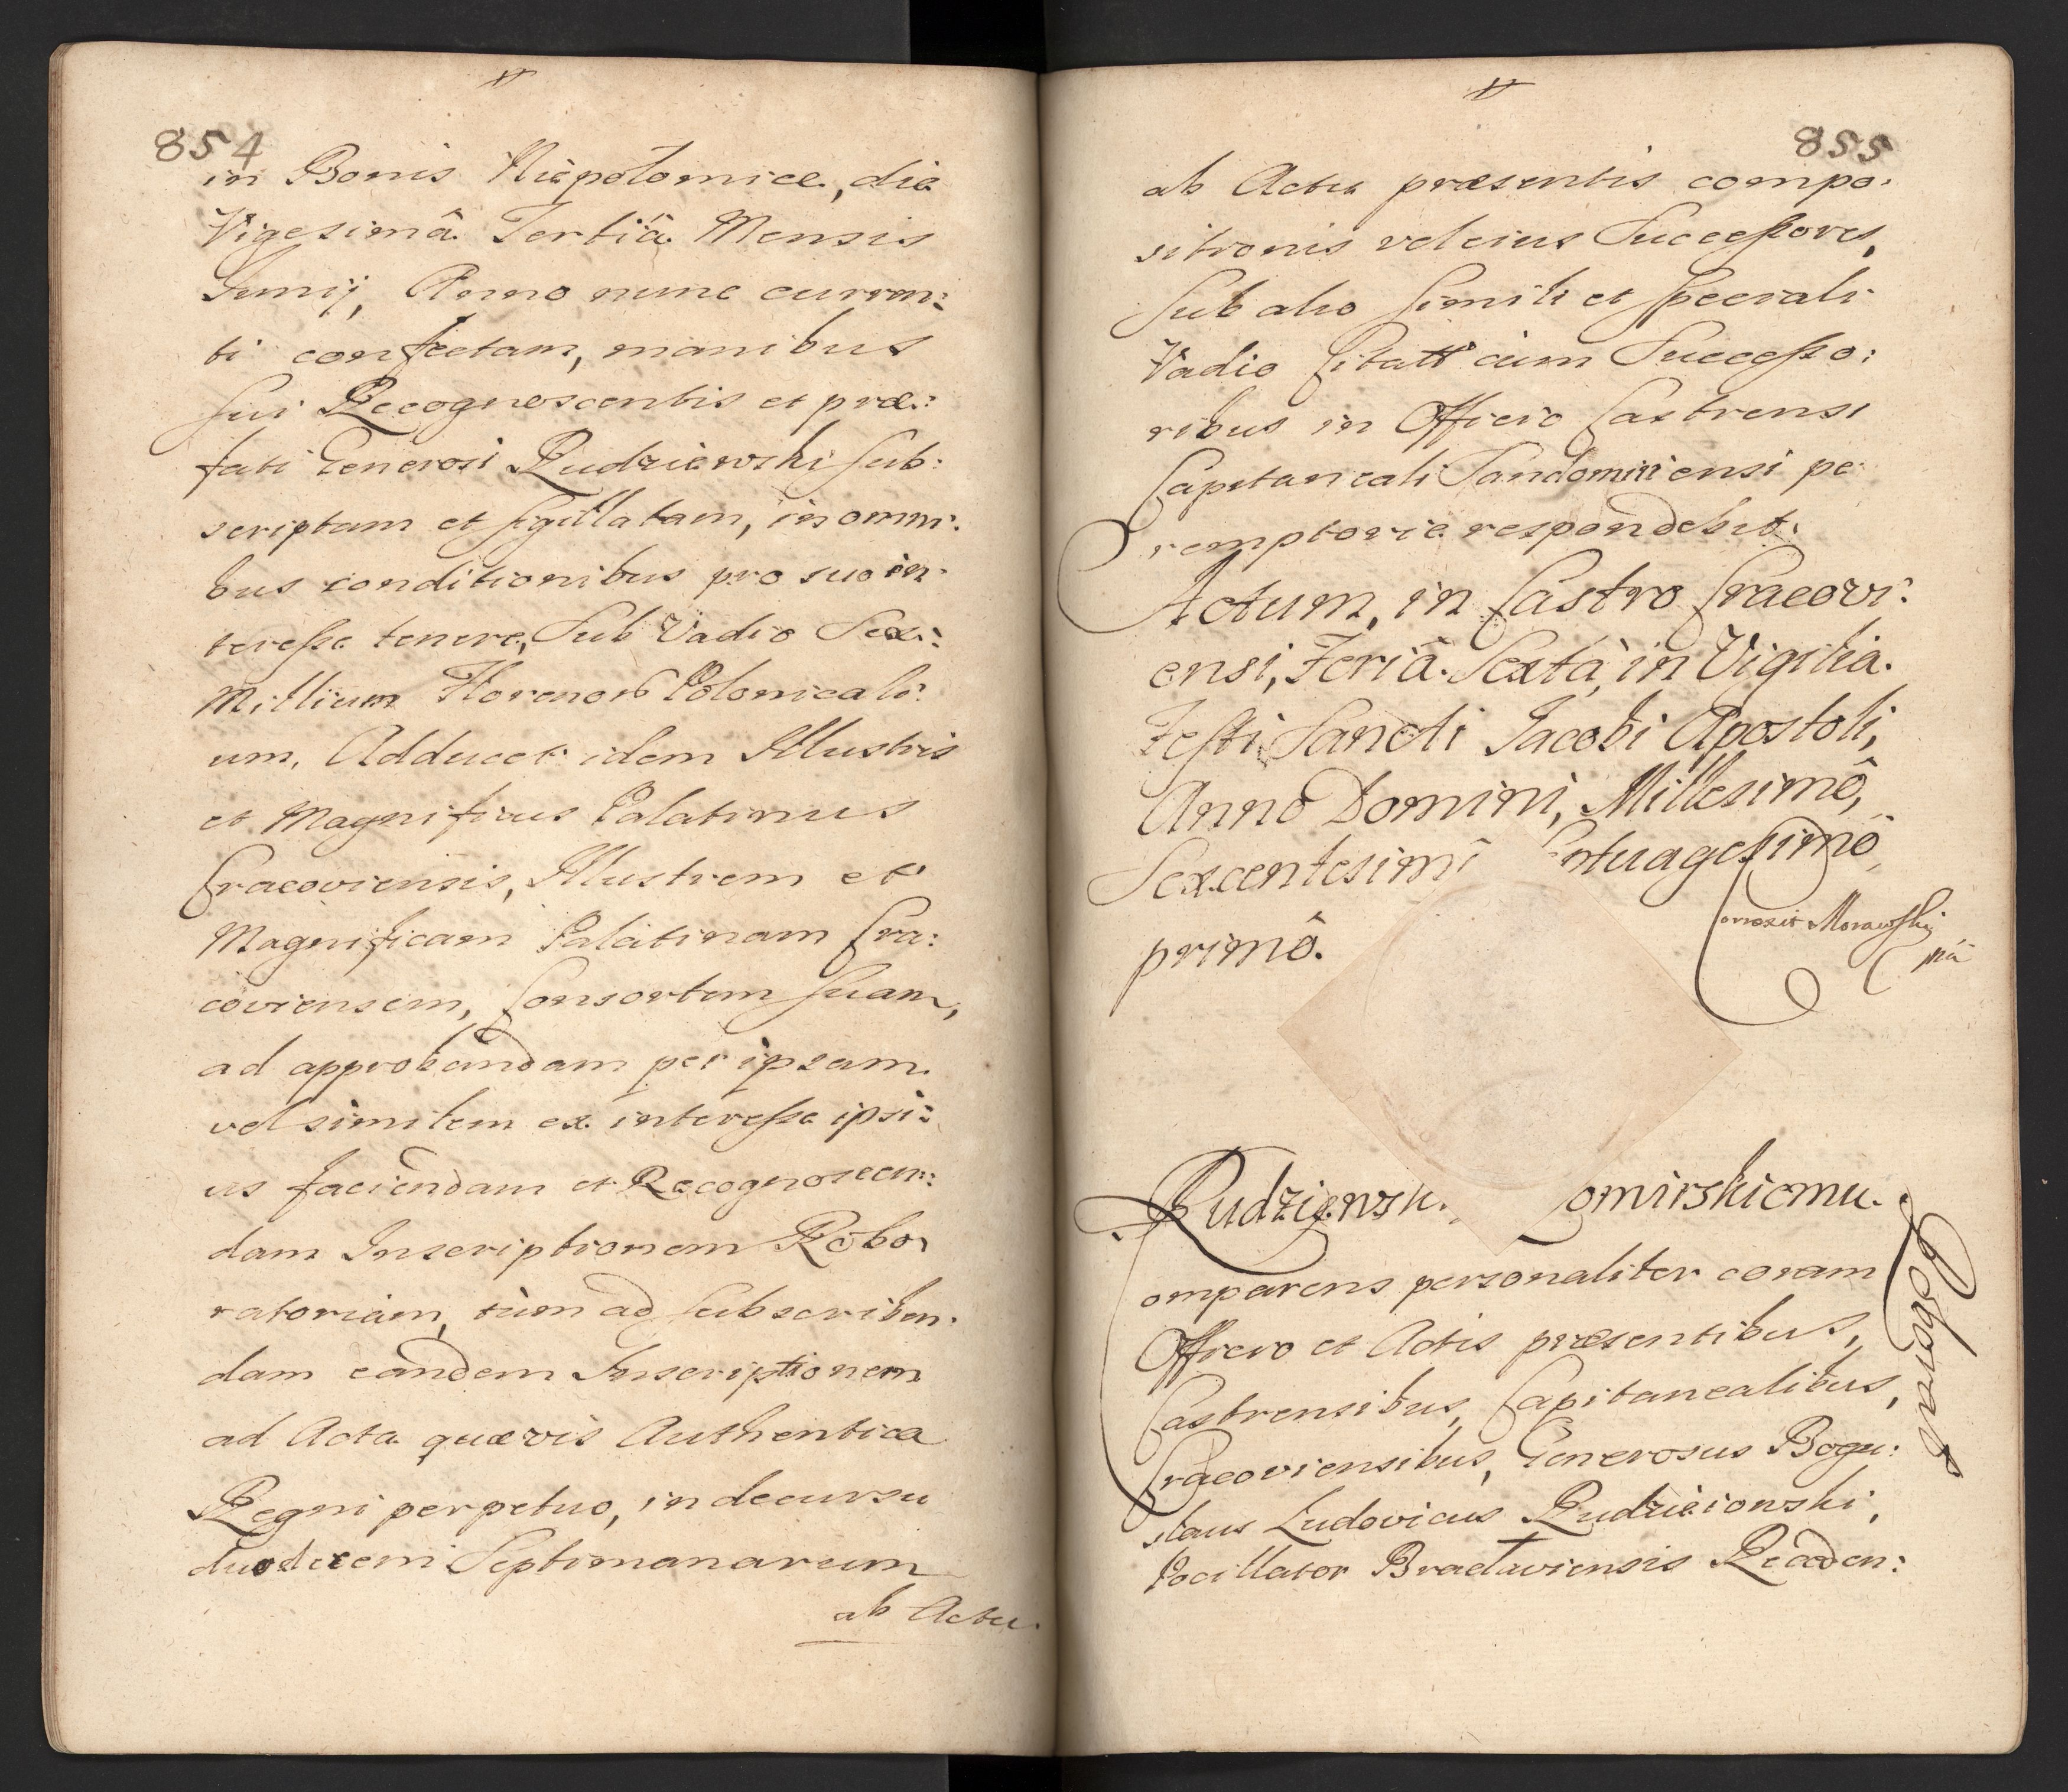 854
in Bonis Niepolomice, die
Vigesimâ Tertiâ Mensis
Junij, Anno nunc curren:
ti confectam, manibus
sui Recognoscentis et præ:
fati Generosi Rudziewski sub:
scriptam et sigillatam, in omni:
bus conditionibus pro suo in:
teresse tenere, Sub Vadio Sex:
Millium Florenor Polonicali:
um, Adducet idem Illustris
et Magnificus Palatinus
Cracoviensis, Illustrem et
Magnificam Palatinam Cra:
coviensem, Consortem suam,
ad approbandam per ipsam
vel similem ex interesse ipsi:
us faciendam et Recognoscen:
dam Inscriptionem Robo:
ratoriam, tùm ad subscriben:
dam eandem Inscriptionem
ad Acta quævis Authentica
Regni perpetuo, in decursu
duodecem Septimanarum
ab Actu
855
ab Actu præsentis compo:
sitionis vel eius Successores,
sub alio simili et speciali
Vadio citatt cùm Successo:
ribus in Officio Castrensi
Capitaneali Sandomiriensi pe
remptorie respondebit.
Actum, in Castro Cracovi:
ensi, Feriâ Sextâ, in Vigilia
Festi Sancti Jacobi Apostoli,
Anno Domini, Millesimô,
Sexcentesim ntuagesimô
primô.
Correxit Morawski
mã
Rudziewsk omirskiemu.
Oblata
omparens personaliter coram
Officio et Actis præsentibus,
Castrensibus, Capitanealibus,
Cracoviensibus, Generosus Bogu:
slaus Ludovicus Rudzieiowski,
Pocillator Braclaviensis Recoden: